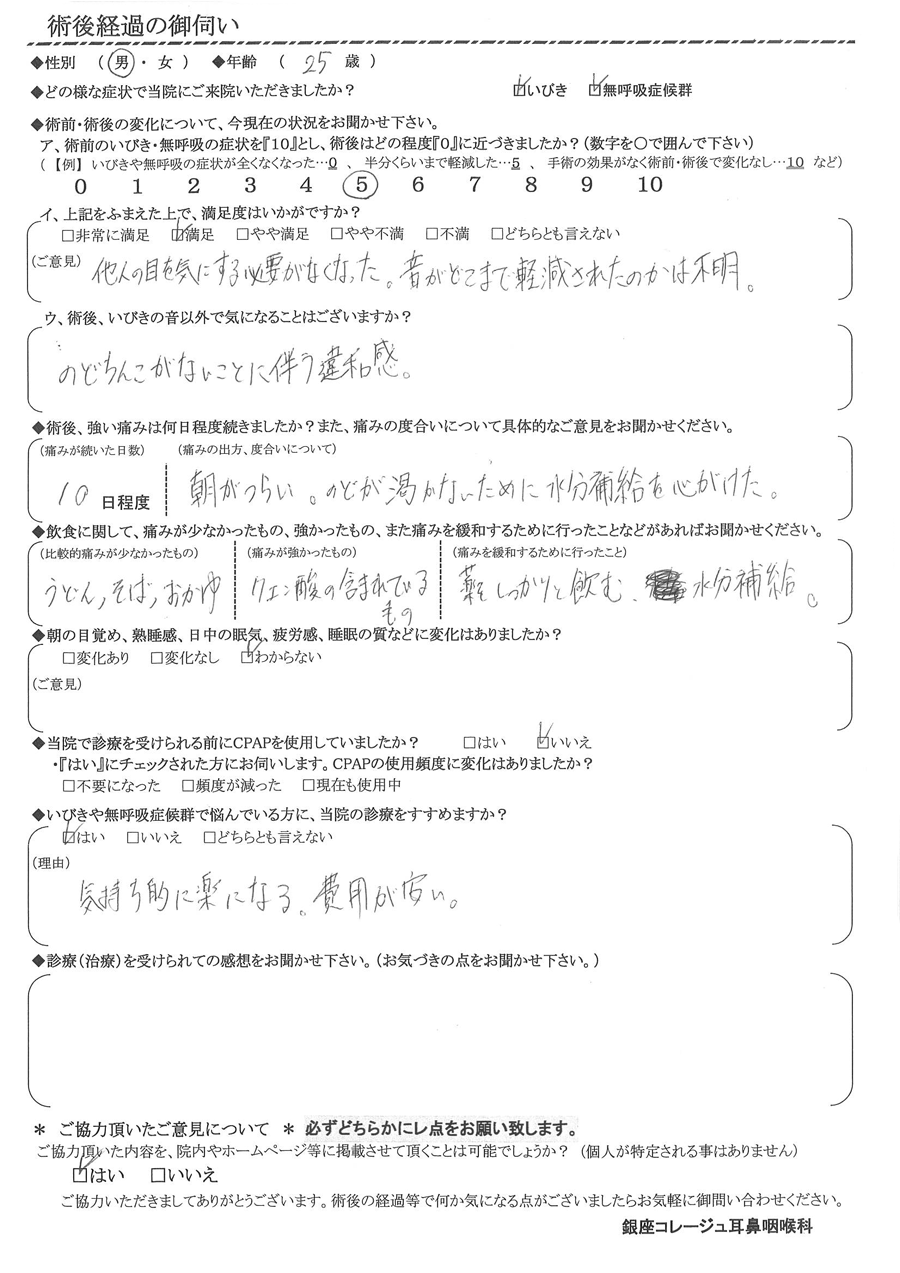 術後経過の御伺い
◆性別 （ 男 ・ 女 ） ◆年齢 （ 25 歳 ）
◆どの様な症状で当院にご来院いただきましたか？ ☑いびき ☑無呼吸症候群
◆術前・術後の変化について、今現在の状況をお聞かせ下さい。
ア、術前のいびき・無呼吸の症状を『10』とし、術後はどの程度『0』に近づきましたか？（数字を○で囲んで下さい）
（【例】 いびきや無呼吸の症状が全くなくなった…0 、 半分くらいまで軽減した…5 、 手術の効果がなく術前・術後で変化なし…10 など）
0 1 2 3 4 ⑤ 6 7 8 9 10
イ、上記をふまえた上で、満足度はいかがですか？
□非常に満足 ☑満足 □やや満足 □やや不満 □不満 □どちらとも言えない
（ご意見） 他人の目を気にする必要がなくなった。音がどこまで軽減されたのかは不明。
ウ、術後、いびきの音以外で気になることはございますか？
のどちんこがないことに伴う違和感。
◆術後、強い痛みは何日程度続きましたか？また、痛みの度合いについて具体的なご意見をお聞かせください。
（痛みが続いた日数） （痛みの出方、度合いについて）
10 日程度 朝がつらい。のどが渇かないために水分補給を心がけた。
◆飲食に関して、痛みが少なかったもの、強かったもの、また痛みを緩和するために行ったことなどがあればお聞かせください。
（比較的痛みが少なかったもの） （痛みが強かったもの） （痛みを緩和するために行ったこと）
うどん，そば，おかゆ クエン酸の含まれている 薬をしっかりと飲む、水分補給。
もの
◆朝の目覚め、熟睡感、日中の眠気、疲労感、睡眠の質などに変化はありましたか？
□変化あり □変化なし ☑わからない
（ご意見）
◆当院で診療を受けられる前にCPAPを使用していましたか？ □はい ☑いいえ
・『はい』にチェックされた方にお伺いします。CPAPの使用頻度に変化はありましたか？
□不要になった □頻度が減った □現在も使用中
◆いびきや無呼吸症候群で悩んでいる方に、当院の診療をすすめますか？
☑はい □いいえ □どちらとも言えない
（理由）
気持ち的に楽になる。費用が安い。
◆診療（治療）を受けられての感想をお聞かせ下さい。（お気づきの点をお聞かせ下さい。）
＊ ご協力頂いたご意見について ＊ 必ずどちらかにレ点をお願い致します。
ご協力頂いた内容を、院内やホームページ等に掲載させて頂くことは可能でしょうか？ （個人が特定される事はありません）
☑はい □いいえ
ご協力いただきましてありがとうございます。術後の経過等で何か気になる点がございましたらお気軽に御問い合わせください。
銀座コレージュ耳鼻咽喉科